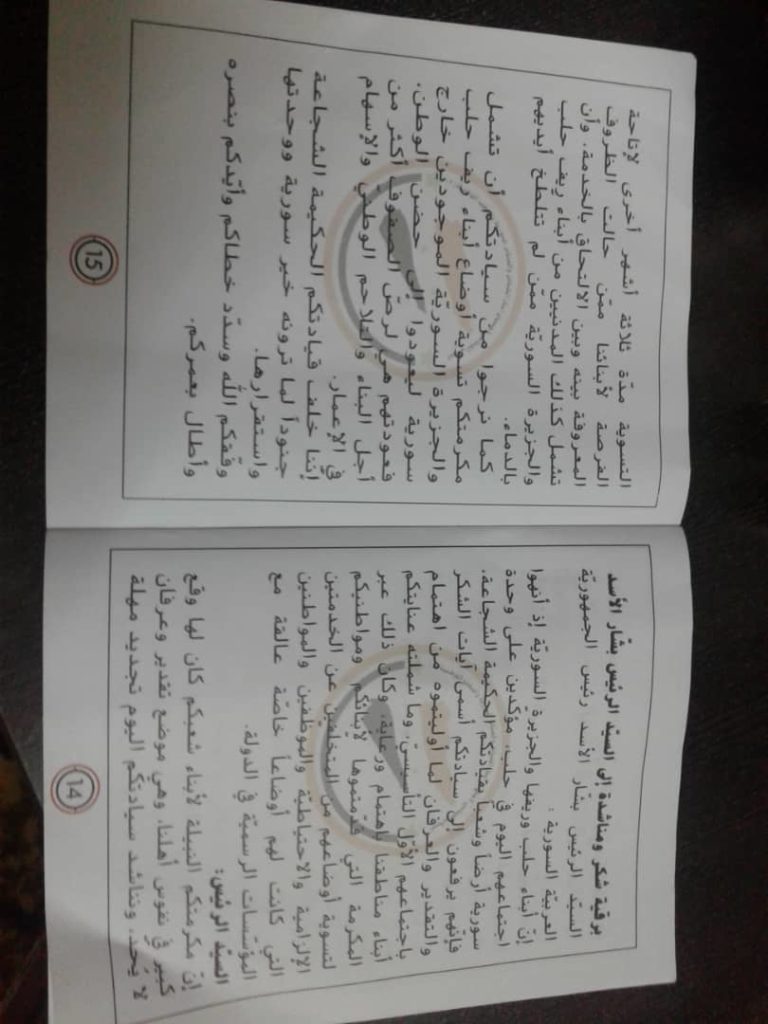 برقية شكر ومناشدة إلى السيّد الرئيس بشّار الأسد
السيّد الرئيس بشّار الأسد رئيس الجمهوريّة
العربيّة السورية :
إنّ أبناء حلب وريفها والجزيرة السوريّة إذ أنهوا
اجتماعهم اليوم في حلب، مؤكدين على وحدة
سورية أرضاً وشعباً بقيادتكم الحكيمة الشجاعة.
فإنّهم يرفعون إلى سيادتكم أسمى آيات الشكر
والتقدير والعرفان لما أوليتموه من اهتمام
باجتماعهم الأوّل التأسيسيّ، وما شملته عنايتكم
أبناء مناطقنا باهتمام ورعاية، وكان ذلك عبر
المكرمة التي قدّمتموها لأبنائكم ومواطنيكم
لتسوية أوضاعهم من المتخلّفين عن الخدمتين
الإلزامية والاحتياطيّة والموظفين والمواطنين
التي كانت لهم أوضاعاً خاصّة عالقة مع
المؤسّسات الرسميّة في الدولة.
السيّد الرئيس:
إنّ مكرمتكم النبيلة لأبناء شعبكم كان لها وقع
كبير في نفوس أهلنا، وهي موضع تقدير وعرفان
لا يُحد، ونناشد سيادتكم اليوم تجديد مهلة
14
التسوية مدّة ثلاثة أشهر أخرى لإتاحة
الفرصة لأبنائنا ممّن حالت الظروف
المعروفة بينه وبين الالتحاق بالخدمة، وأن
تشمل كذلك المدنيين من أبناء ريف حلب
والجزيرة السوريّة ممّن لم تتلطخ أيديهم
بالدماء.
كما نرجوا من سيادتكم أن تشمل
مكرمتكم تسوية أوضاع أبناء ريف حلب
والجزيرة السوريّة الموجودين خارج
سورية ليعودوا إلى حضن الوطن،
فعودتهم هي لرصّ الصفوف أكثر من
أجل البناء والتلاحم الوطني والإسهام
في الإعمار.
إننا خلف قيادتكم الحكيمة الشجاعة
جنوداً لما ترونه خير سورية ووحدتها
واستقرارها.
وفقكم الله وسدّد خطاكم وأيّدكم بنصره
وأطال بعمركم.
15